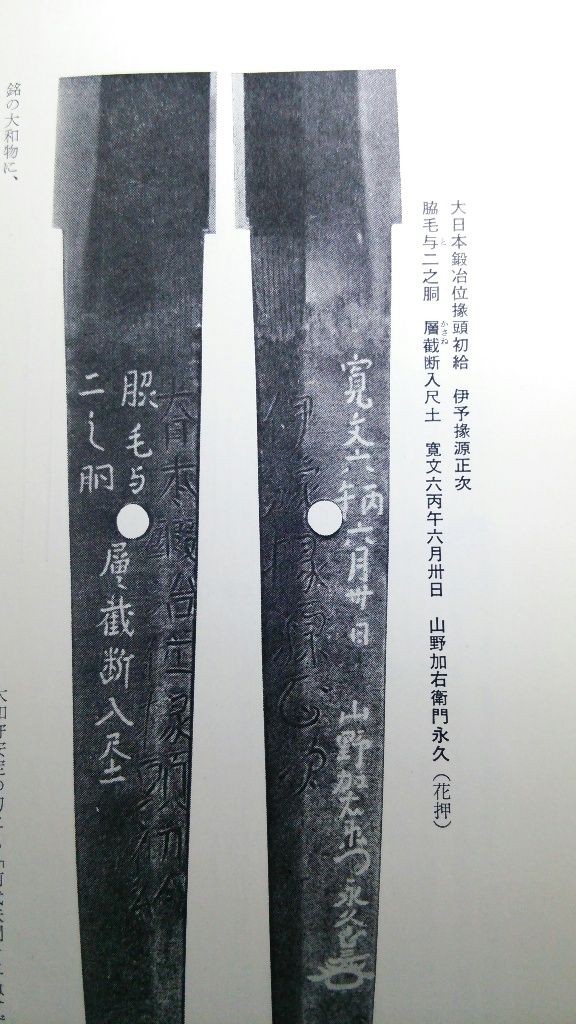 大日本鍛冶位掾頭初給　伊予掾源正次
脇毛与二之胴　層截断入尺土　寛文六丙午六月卅日　山野加右衛門永久（花押）
と
かさね
寛文六年丙六月卅日
山野加右衛門永久
伊予掾源正次
大日本鍛冶位掾頭初給
脇毛与
二之胴
層截断入尺土
銘の大和物に、